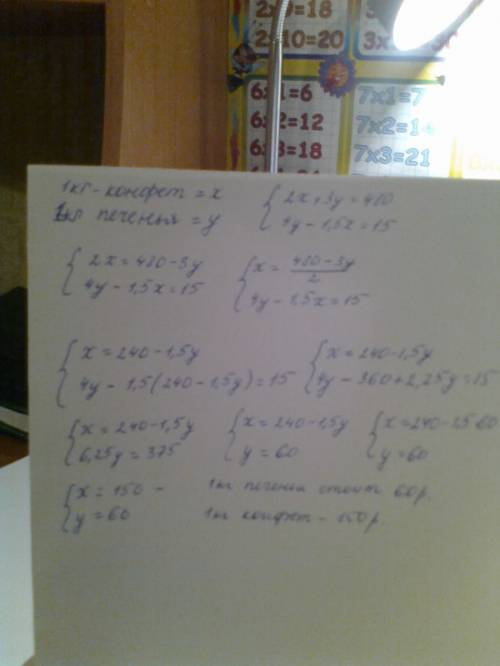 2x9=18
2x10=20
6x1=6
6x2=12
6x3=18
7x1=7
7x2=14
7x3=21
1кг-конфет = x
1кг печенья = y
{ 2x+3y=480
4y-1,5x=15
{ 2x=480-3y
4y-1,5x=15
{ x= 480-3y / 2
4y-1,5x=15
{ x=240-1,5y
4y-1,5(240-1,5y)=15
{ x=240-1,5y
4y-360+2,25y=15
{ x=240-1,5y
6,25y=375
{ x=240-1,5y
y=60
{ x=240-1,5·60
y=60
{ x=150 -
y=60
1кг печенья стоит 60р.
1кг конфет - 150р.